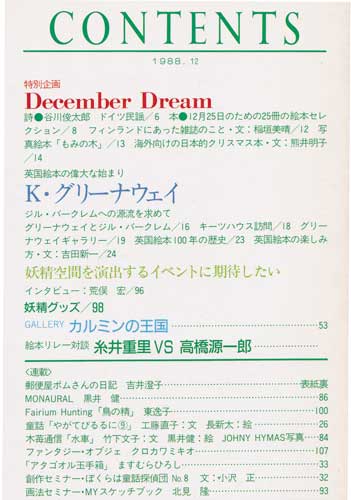 CONTENTS
1988.12
特別企画
December Dream
詩●谷川俊太郎　ドイツ民謡／6　本●12月25日のための25冊の絵本セレ
クション／8　フィンランドにあった雑誌のこと・文：稲垣美晴／12　写
真絵本「もみの木」／13　海外向けの日本的クリスマス本・文：熊井明子
／14
英国絵本の偉大な始まり
K・グリーナウェイ
ジル・バークレムへの源流を求めて
グリーナウェイとジル・バークレム／16　キーツハウス訪問／18　グリー
ナウェイギャラリー／19　英国絵本100年の歴史／23　英国絵本の楽しみ
方・文：吉田新一／24
妖精空間を演出するイベントに期待したい
インタビュー：荒俣　宏／96
妖精グッズ／98
GALLERY カルミンの王国 53
絵本リレー対談 糸井重里 VS 高橋源一郎
〈連載〉
郵便屋ポムさんの日記　吉井澄子 表紙裏
MONAURAL　黒井　健 86
Fairium Hunting「鳥の精」　東逸子 100
童話「やがてぴるるに⑨」　工藤直子：文　長新太：絵 26
木苺通信「水車」　竹下文子：文　黒井健：絵　JOHNY HYMAS写真 84
ファンタジー・オブジェ　クロカワミキオ 107
「アタゴオル玉手箱」　ますむらひろし 33
創作セミナー・ぼくらは童話探偵団 No.8　文：小沢　正 32
画法セミナー・MYスケッチブック　北見　隆 93